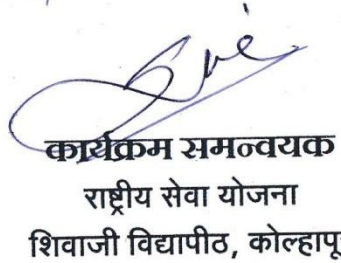 कार्यक्रम समन्वयक
राष्ट्रीय सेवा योजना
शिवाजी विद्यापीठ, कोल्हापू